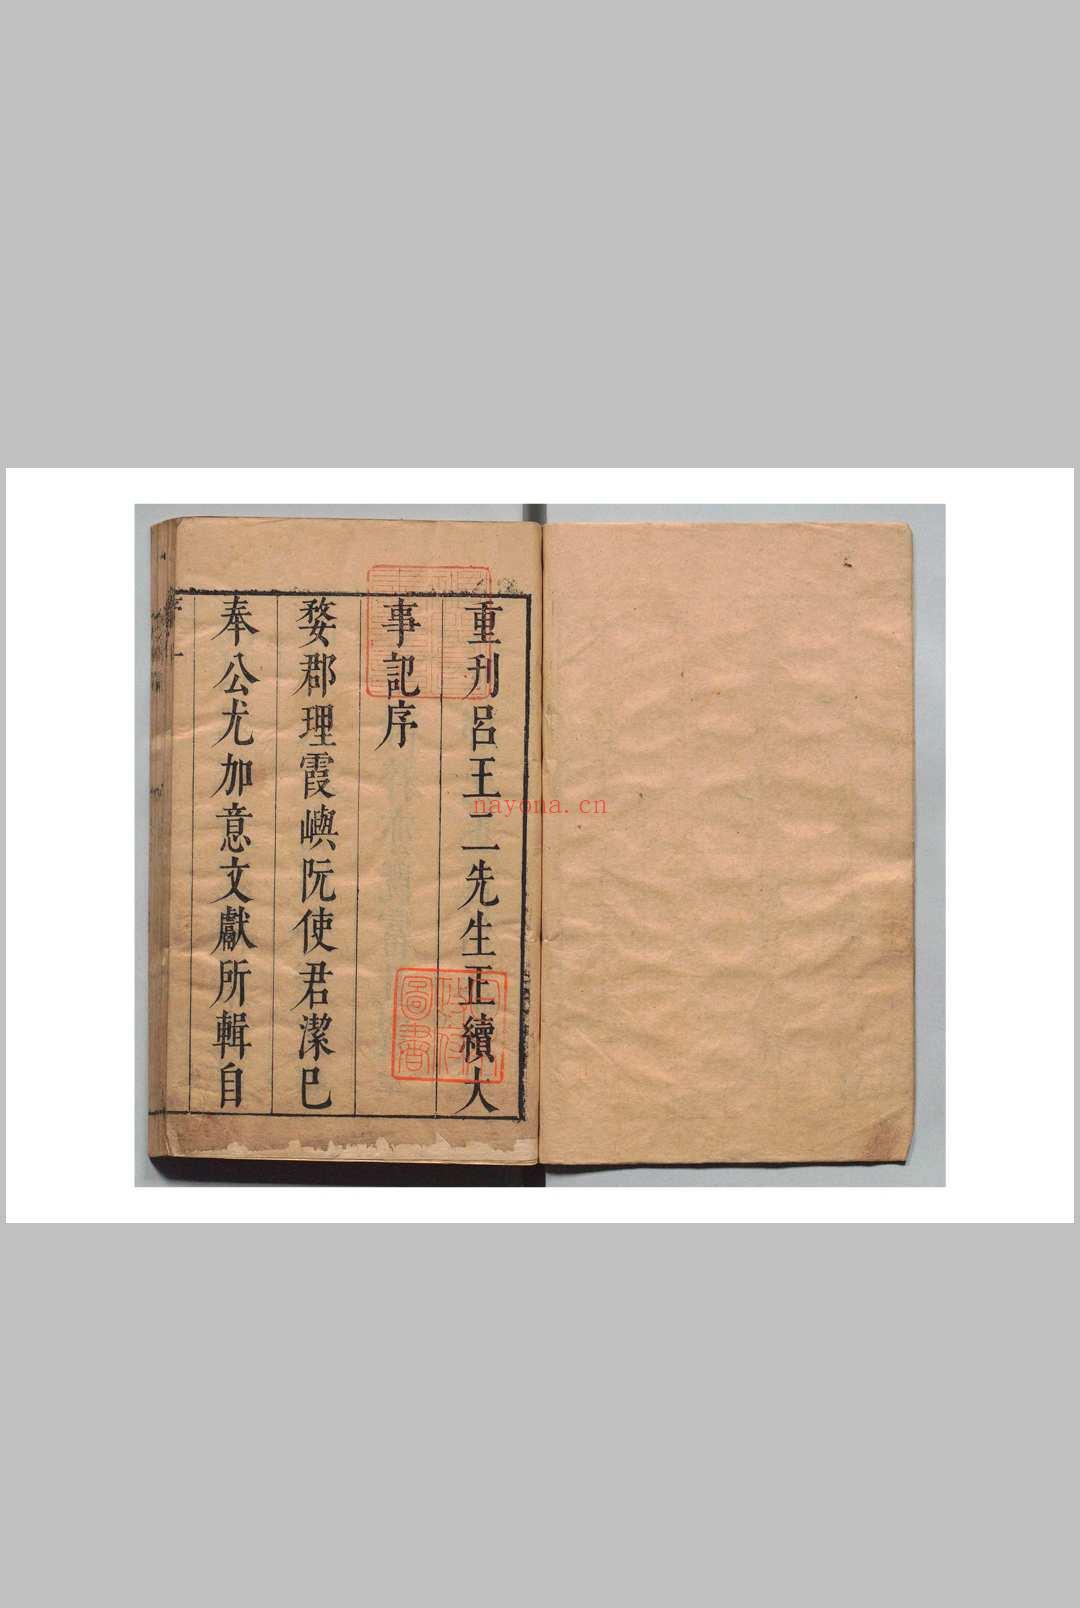 重刊呂王二先生正續大
事記序
婺郡理霞嶼阮使君潔巳
奉公尤加意文獻所輯自
序 一
圖書
nayona.cn